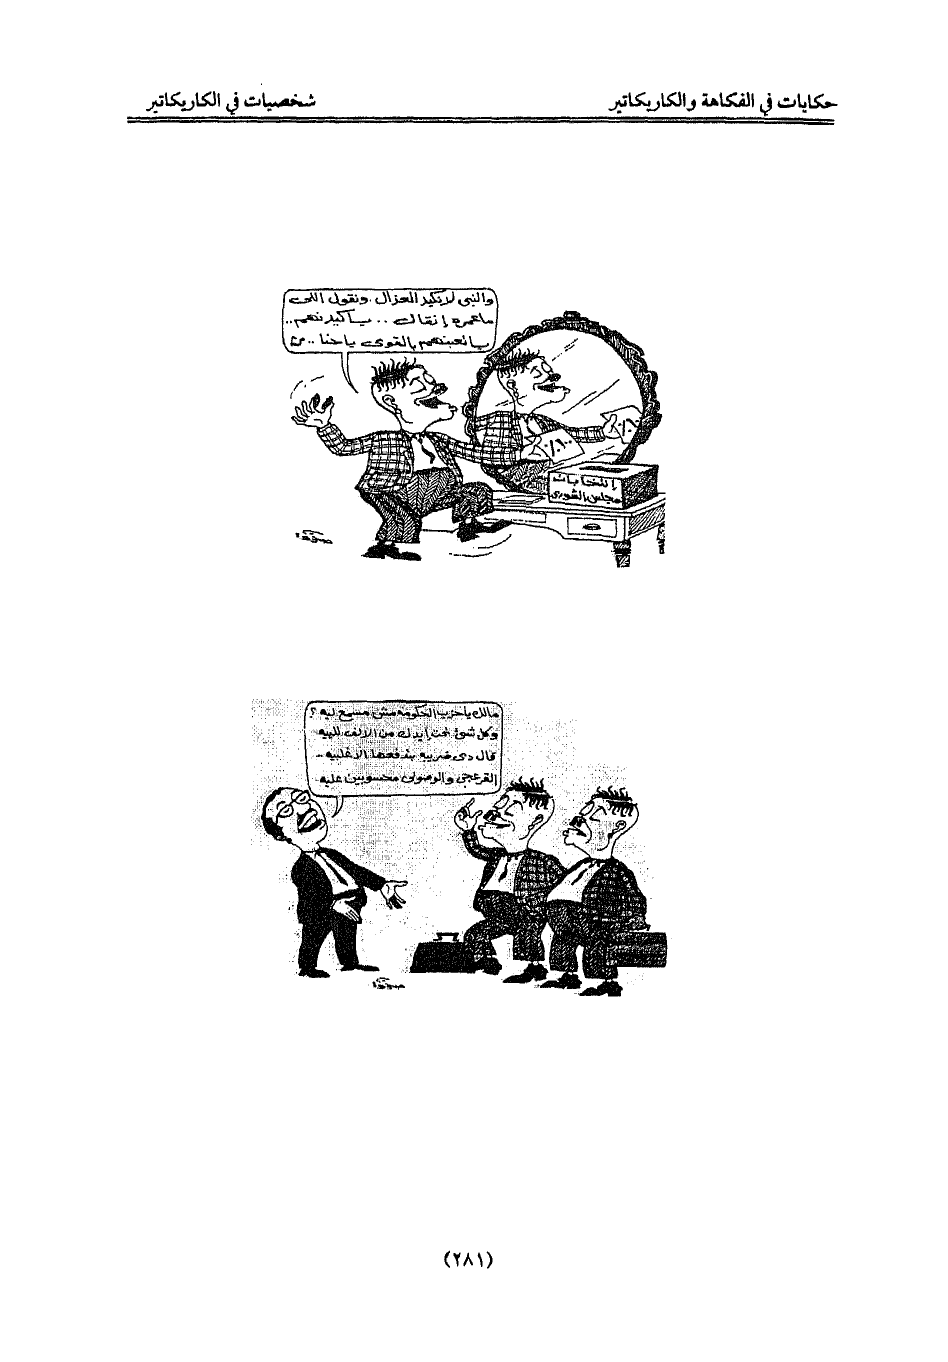 حكايات في الفكاهة والكاريكاتير
شخصيات في الكاريكاتير
والنبى لانكيد العزال .. ونقول اللى
ما عمره إتقال .. يا كيدنهم ..
يالعبنهم بالقوى ياحنا ..
١٠٠٪
١٠٠٪
إنتخابات
مجلس الشورى
مالك يا حزب الحكومه مش مسمع ليه ؟
وكل شئ تحت إيدك من الالف للييه
قال دى ضريبه بتدفعها الاغلبيه ..
القرعجى والرمنولى محسوبين عليه
(٢٨١)